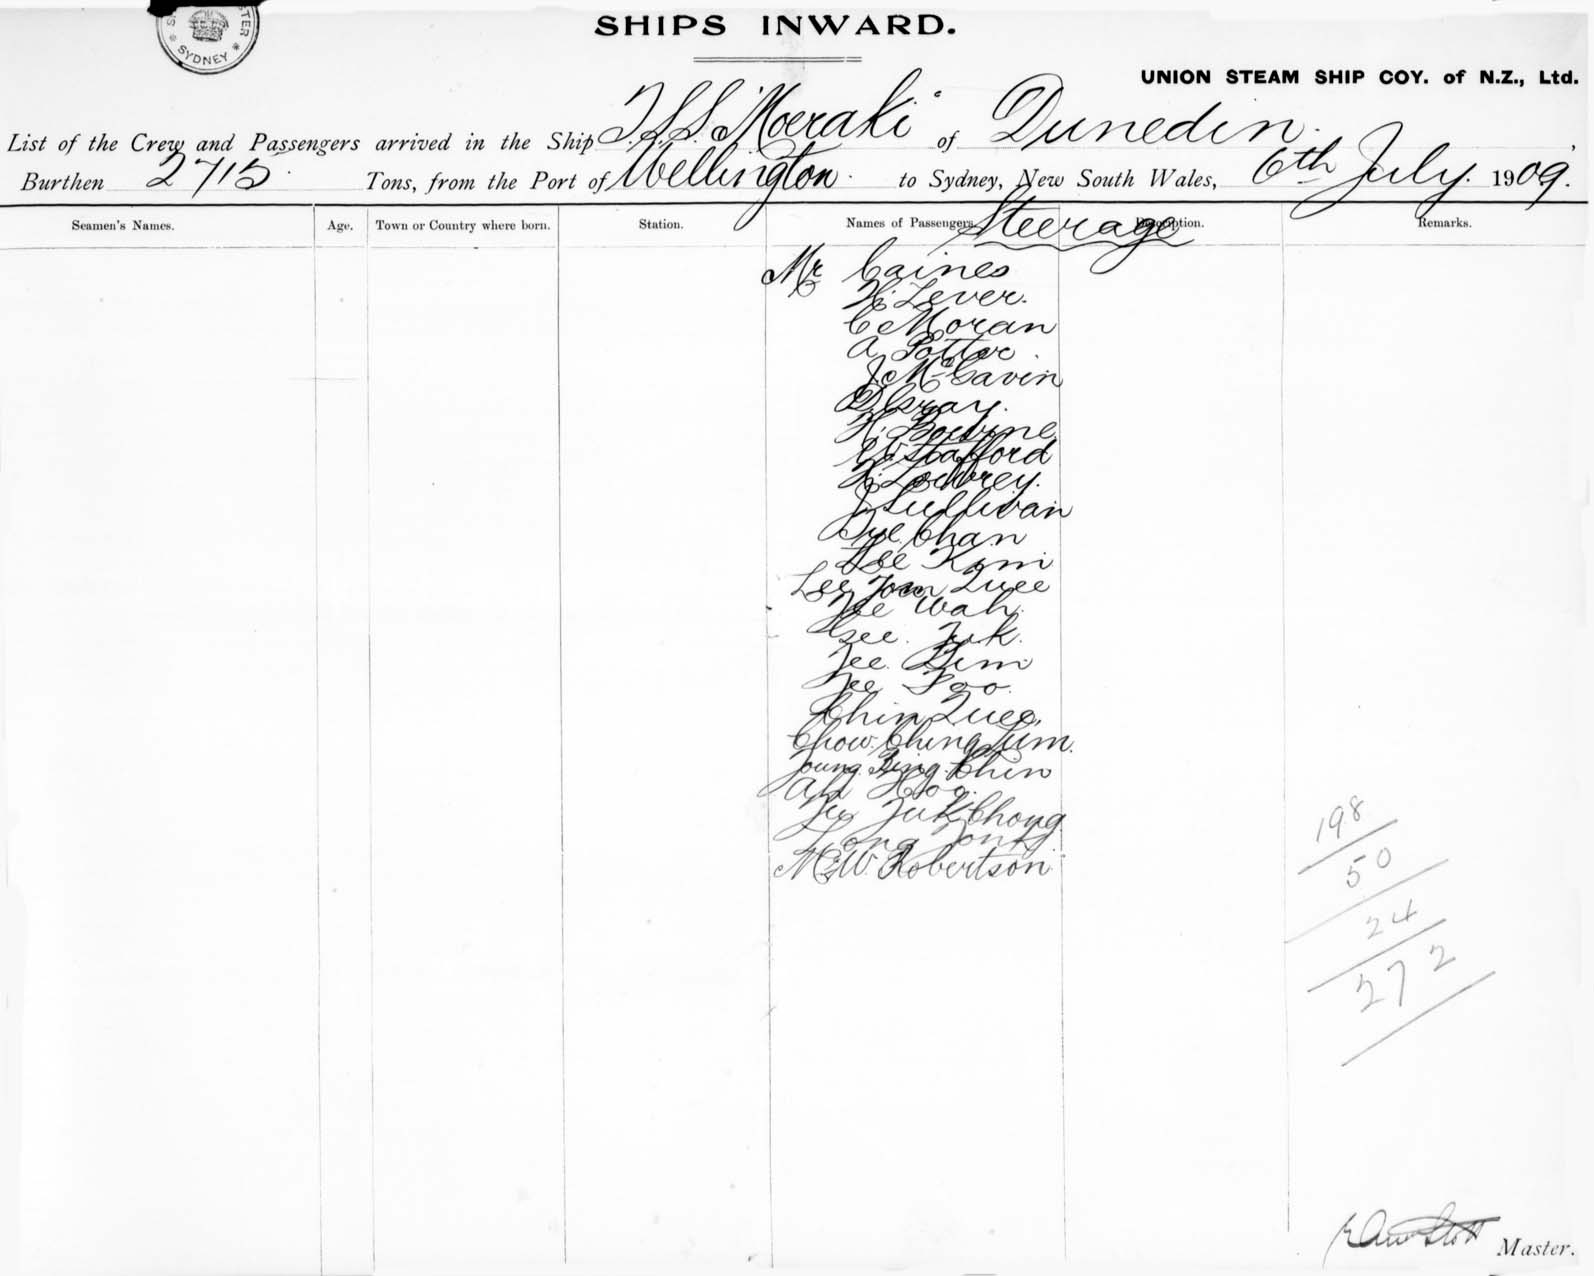 SYDNEY
SHIPS INWARD.
UNION STEAM SHIP COY. of N.Z., Ltd.
List of the Crew and Passengers arrived in the Ship T.S.S. Moeraki of Dunedin.
Burthen 2715 Tons, from the Port of Wellington to Sydney, New South Wales, 6th July 1909.
Seamen's Names. Age. Town or Country where born. Station. Names of Passengers Steerage Description. Remarks.
Mr Caines
H. Lever.
C Moran
A Potter
J. McGavin
D Gray.
H.
W Stafford
H. Lowrey.
J Sullivan
Chan
Lee Kim
Lee Quee
Yee Wah.
Gee
Yee
Yee
Chin Quee.
Chow. Ching
Young. Chin
Ah
Chong
M. W. Robertson
198
50
24
272
Master.